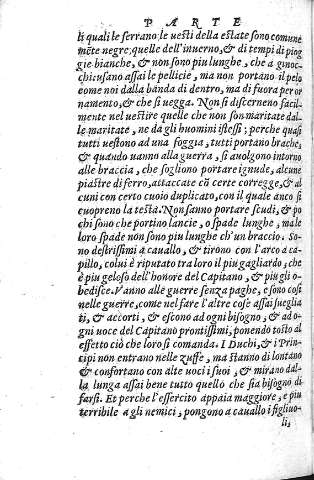 PARTE
li quali le serrano: le uesti della estate sono comune
mẽte negre; quelle dell'inuerno, & di tempi di piog
gie bianche, & non sono piu lunghe, che a ginoc-
chi: usano assai le pellicie, ma non portano il pelo
come noi dalla banda di dentro, ma di fuora per or
namento, & che si uegga. Non si discerneno facil-
mente nel uestire quelle che non son maritate dal-
le maritate, ne da gli huomini istessi; perche quasi
tutti uestono ad una foggia, tutti portano brache,
& quando uanno alla guerra, si auolgono intorno
alle braccia, che sogliono portare ignude, alcune
piastre di ferro, attaccate cõ certe corregge, & al
cuni con certo cuoio duplicato, con il quale anco si
cuopreno la testa. Non sanno portare scudi, & po
chi sono che portino lancie, o spade lunghe, ma le
loro spade non sono piu lunghe ch'un braccio. So-
no destrissimi a cauallo, & tirono con l'arco a ca-
pillo, colui è riputato tra loro il piu gagliardo; che
è piu geloso dell'honore del Capitano, & piu gli o-
bedisce. Vanno alle guerre senza paghe, e sono cosi
nelle guerre, come nel fare l'altre cose assai sueglia
ti, & accorti, & escono ad ogni bisogno, & ad o-
gni uoce del Capitano prontissimi, ponendo tosto al
effetto ciò che loro si comanda. I Duchi, & i Prin-
cipi non entrano nelle zuffe, ma stanno di lontano
& confortano con alte uoci i suoi, & mirano dal-
la lunga assai bene tutto quello che sia bisogno di
farsi. Et perche l'essercito appaia maggiore, e piu
terribile a gli nemici, pongono a cauallo i figliuo-
li,